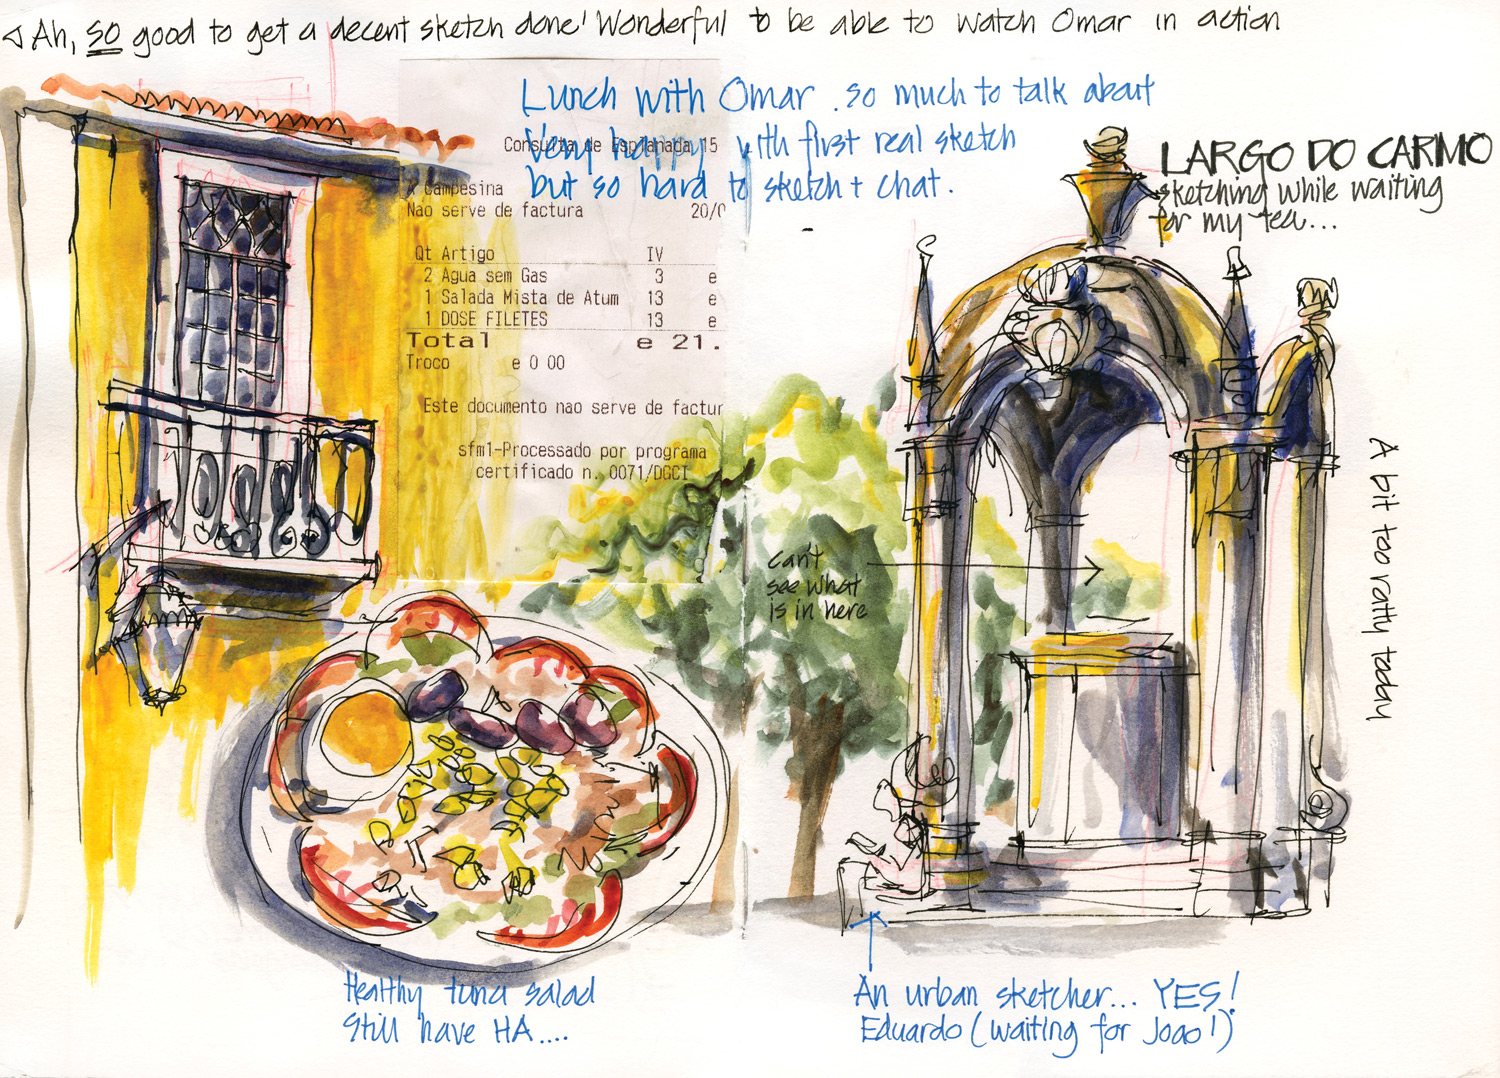 ◁ Ah, so good to get a decent sketch done! Wonderful to be able to watch Omar in action
Lunch with Omar. so much to talk about
Very happy with first real sketch
but so hard to sketch + chat.
Consulta de Esplanada 15
A Campesina
Nao serve de factura 20/0
Qt Artigo IV
2 Agua sem Gas 3 e
1 Salada Mista de Atum 13 e
1 DOSE FILETES 13 e
Total e 21.
Troco e 0 00
Este documento nao serve de factur
sfm1-Processado por programa
certificado n. 0071/DGCI
LARGO DO CARMO
sketching while waiting
for my tea...
can't
see what
is in here
A bit too ratty today
Healthy tuna salad
Still have HA....
An urban sketcher... YES!
Eduardo (waiting for Joao!)